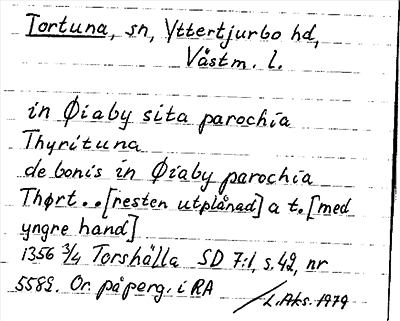 Tortuna, sn, Yttertjurbo hd,
Västm. l.
in Øiaby sita parochia
Thyrituna
de bonis in Øiaby parochia
Thørt.. [resten utplånad] a t. [med
yngre hand]
1356 3/4 Torshälla SD 7:1, s. 42, nr
5582. Or. på perg. i RA
L. Aks. 1979